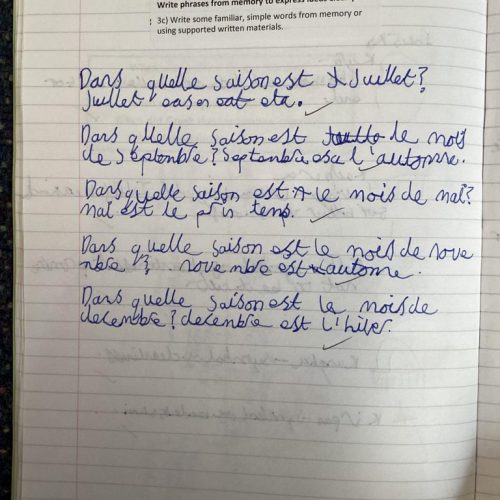 Write phrases from memory to express ideas clearly
3c) Write some familiar, simple words from memory or
using supported written materials.
Dans quelle saison est Juillet?
Juillet
Dans quelle saison est de mois
de septenbre? Septenbre l'automne.
Dans quelle saison est le mois de maî?
maî est le temp.
Dans quelle saison est le mois de nove
nbre? novenbre est automne.
Dans quelle saison est le mois de
decenbre? decenbre est l'hiver.